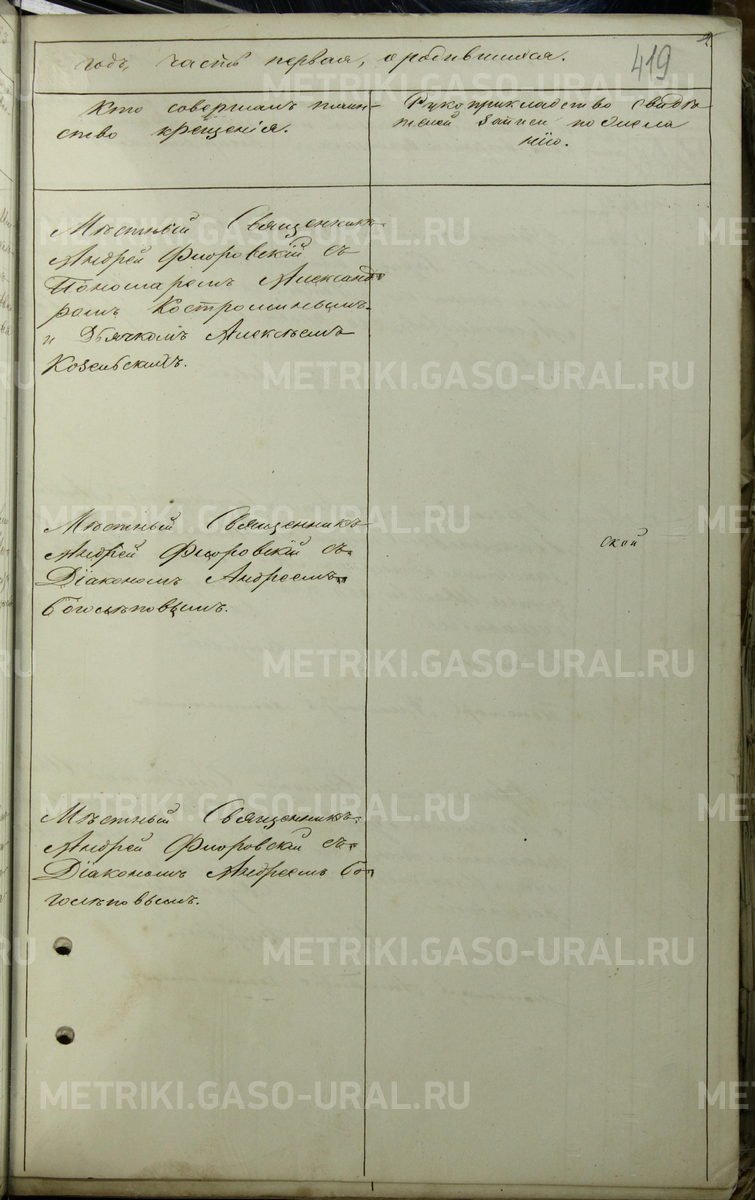 годъ, часть первая, о родившихся.
419
Кто совершалъ таин-
ство крещенія.
Рукоприкладство свидѣ-
телей записи по жела
нію.
Мѣстный Священникъ
Андрей Флоровскій съ
Пономаремъ Александ-
ромъ
и Дьячкомъ Алексѣемъ
Мѣстный Священникъ
Андрей Флоровскій съ
Діакономъ Андреемъ
Боголѣповымъ.
ской
Мѣстный Священникъ
Андрей Флоровскій съ
Діакономъ Андреемъ Бо-
голѣповымъ.
METRIKI.GASO-URAL.RU